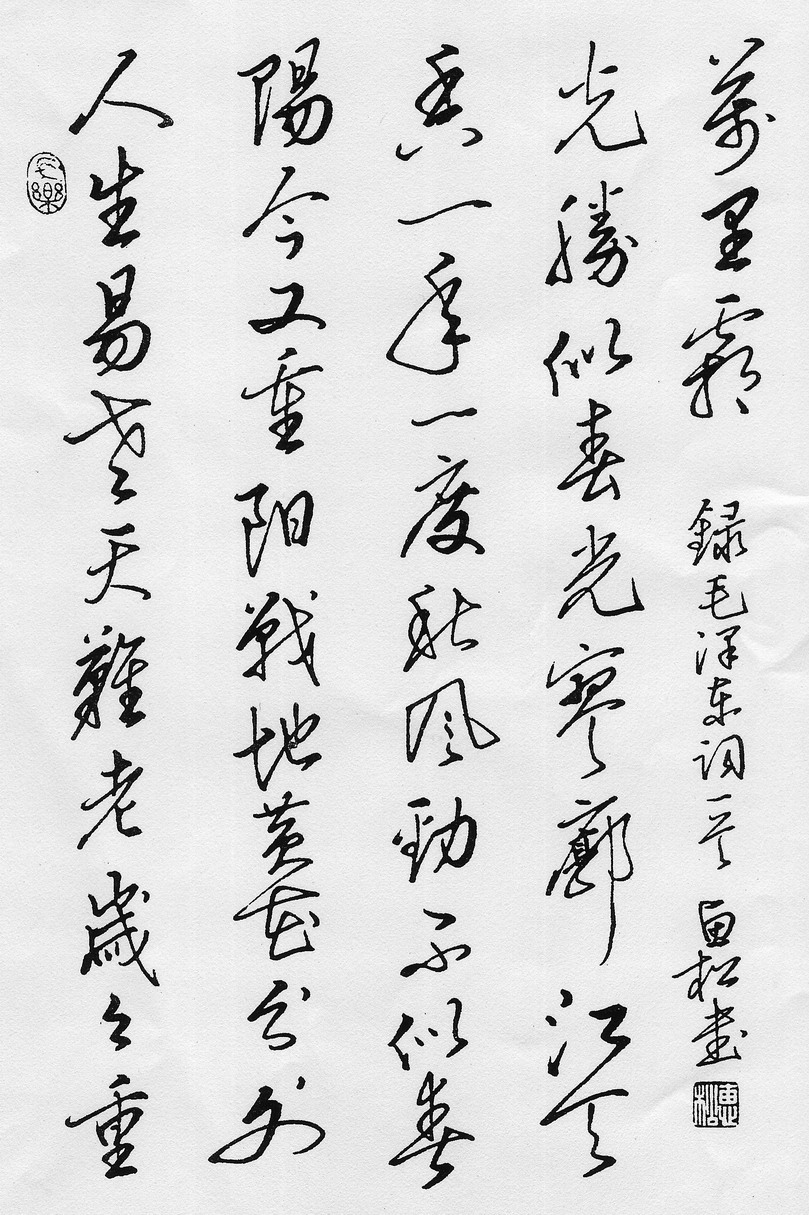 人生易老天難老歲々重
陽今又重阳戰地黄花分外
香一年一度秋風勁不似春
光勝似春光寥廓江天
萬里霜
録毛泽东词一首 惠松書
長樂
惠松